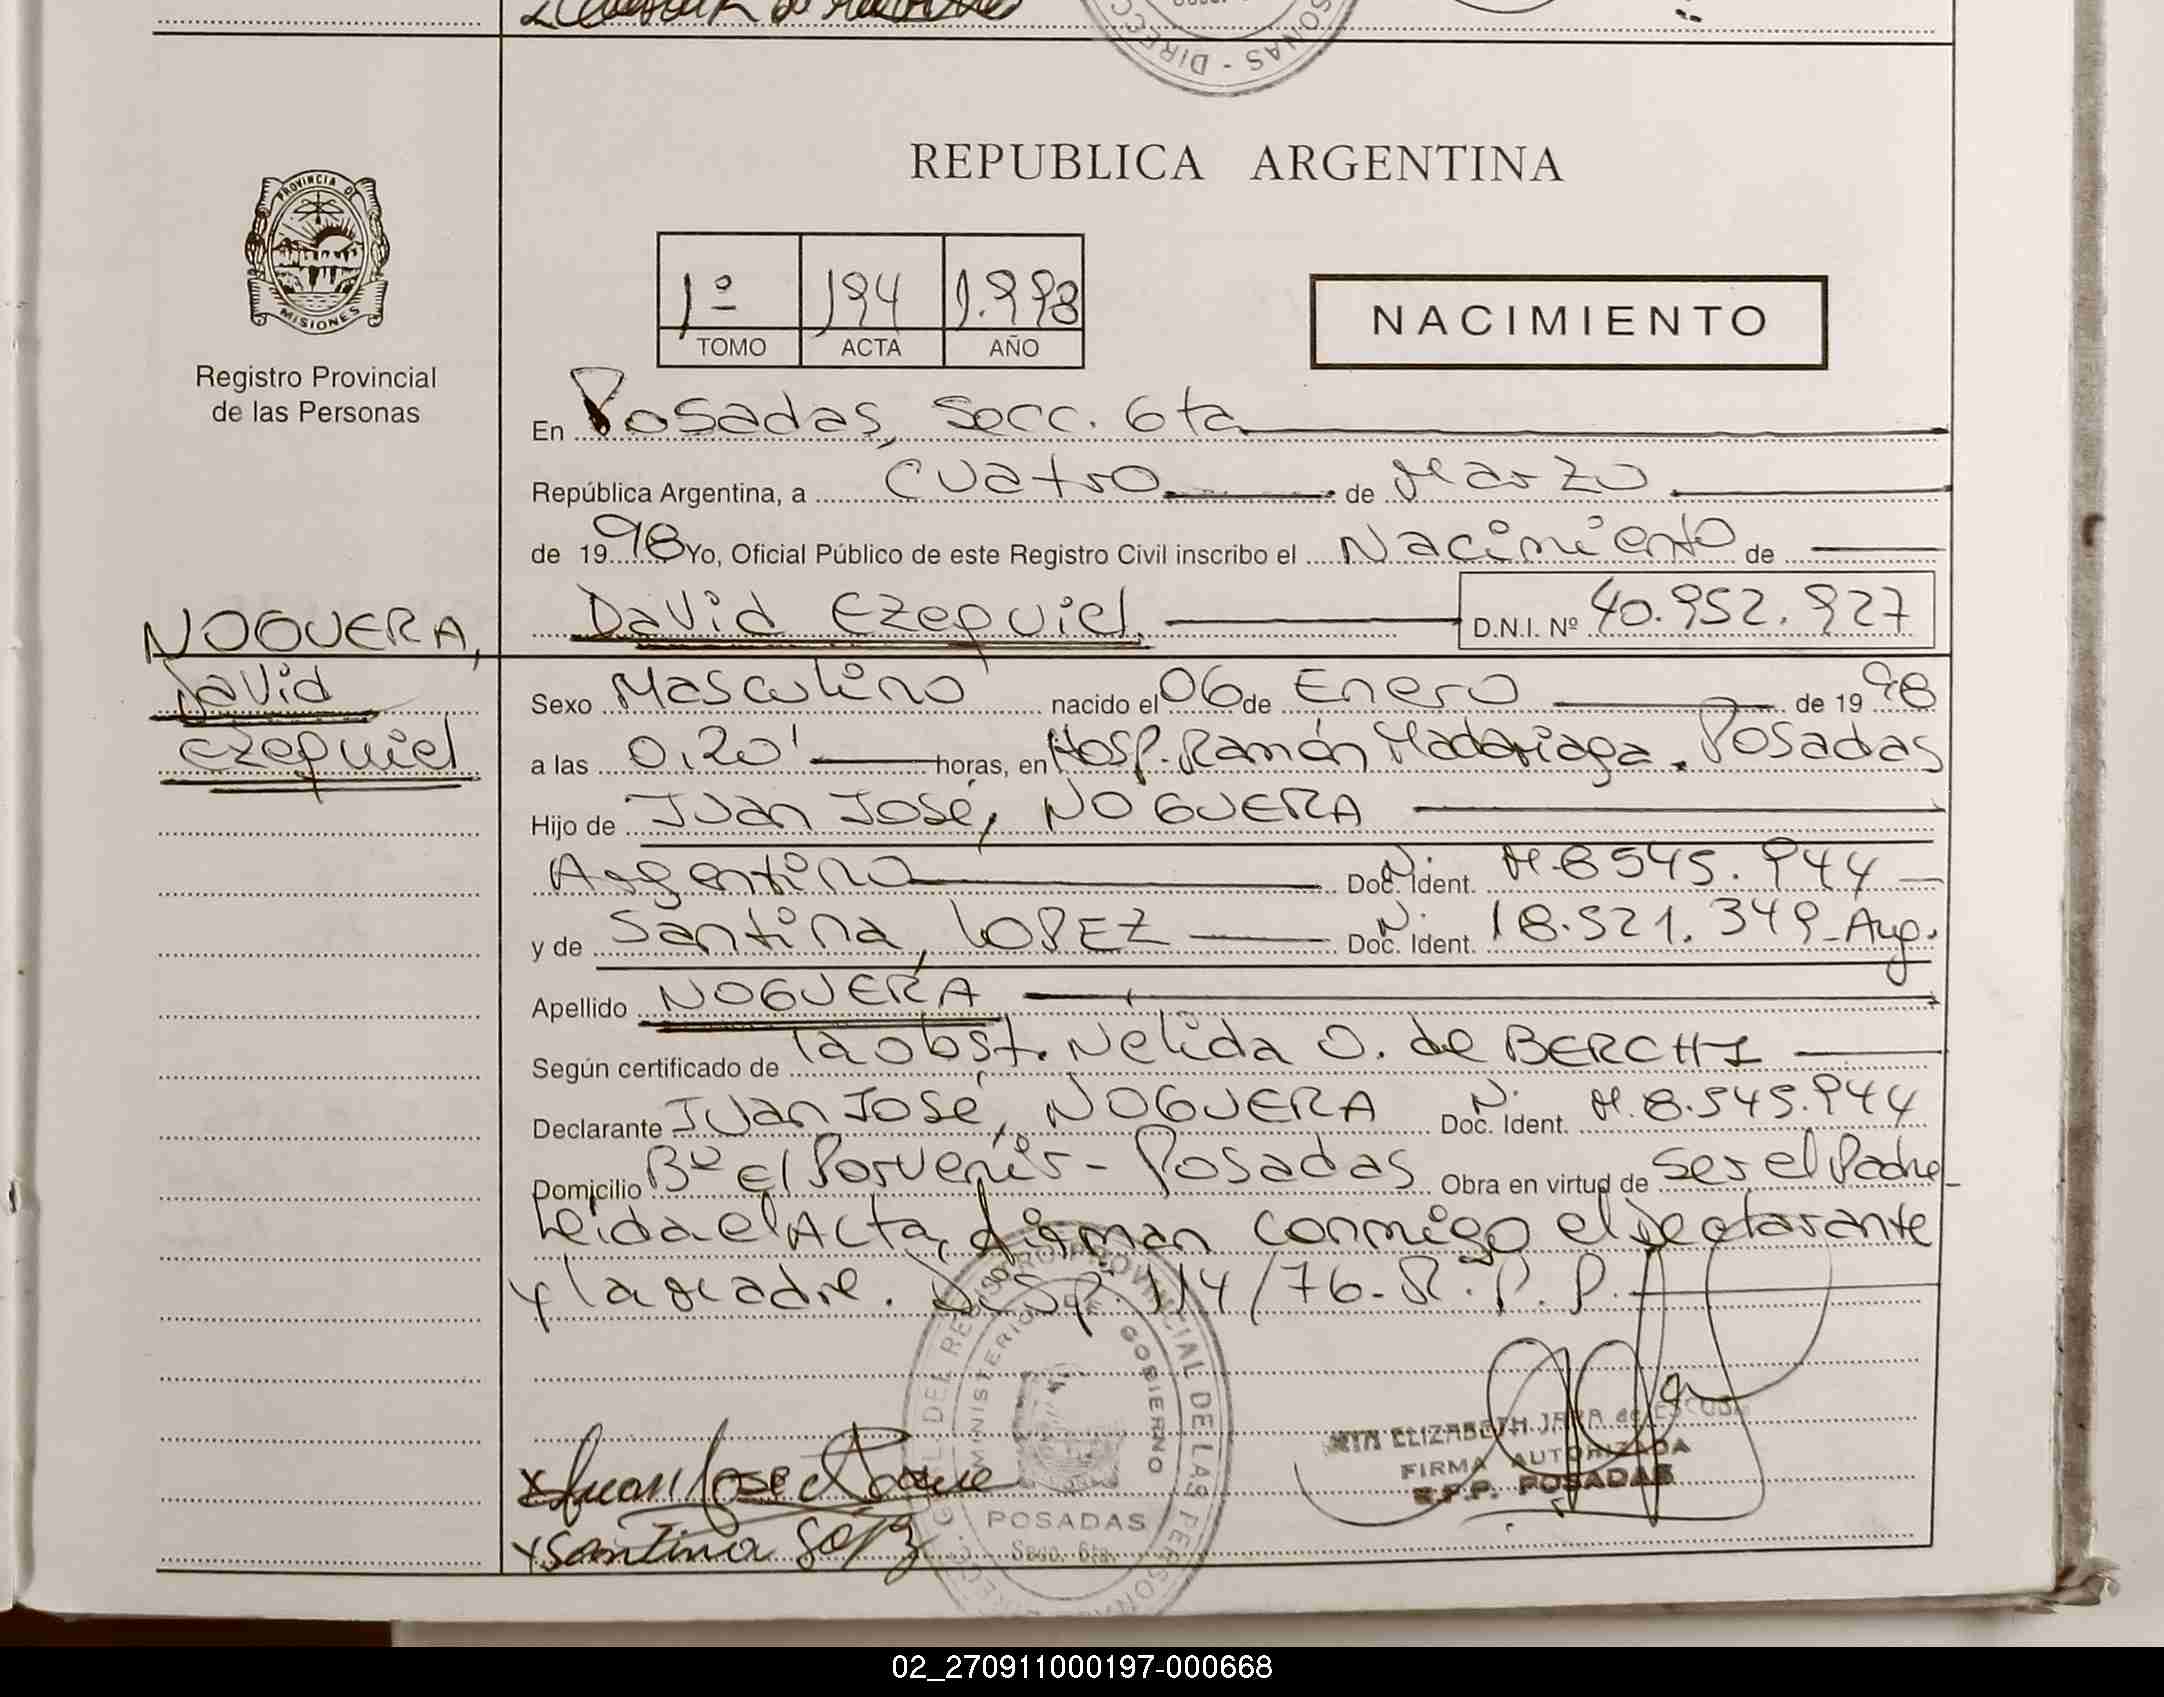 REPUBLICA ARGENTINA
PROVINCIA DE
MISIONES
Registro Provincial
de las Personas
1º 194 1.998
TOMO ACTA AÑO
NACIMIENTO
En Posadas, Secc. 6ta
República Argentina, a cuatro de Marzo
de 1998 Yo, Oficial Público de este Registro Civil inscribo el Nacimiento de
David Ezequiel. D.N.I. Nº 40.952.927
NOGUERA,
David
Ezequiel
Sexo Masculino nacido el 06 de Enero de 1998
a las 0,20' horas, en Hosp. Ramón Madariaga. Posadas
Hijo de Juan José, NOGUERA
Argentino Doc. N. Ident. M.8545.944
y de Santina, LOPEZ Doc. N. Ident. 18.521.349-Arg.
Apellido NOGUERA
Según certificado de la obst. Nélida O. de BERCHI
Declarante Juan José, NOGUERA Doc. N. Ident. M.8.545.944
Domicilio Bº El Porvenir - Posadas Obra en virtud de ser el Padre
Leida el Acta, firman conmigo el declarante
y la madre. Disp. 114/76-R.P.P.
ELIZABETH JARA de
FIRMA AUTORIZADA
R.P.P. POSADAS
x Juan Jose
x Santina Lopez
REGISTRO PROVINCIAL DE LAS PERSONAS
MINISTERIO DE GOBIERNO
POSADAS
Secc. 6ta.
02_270911000197-000668